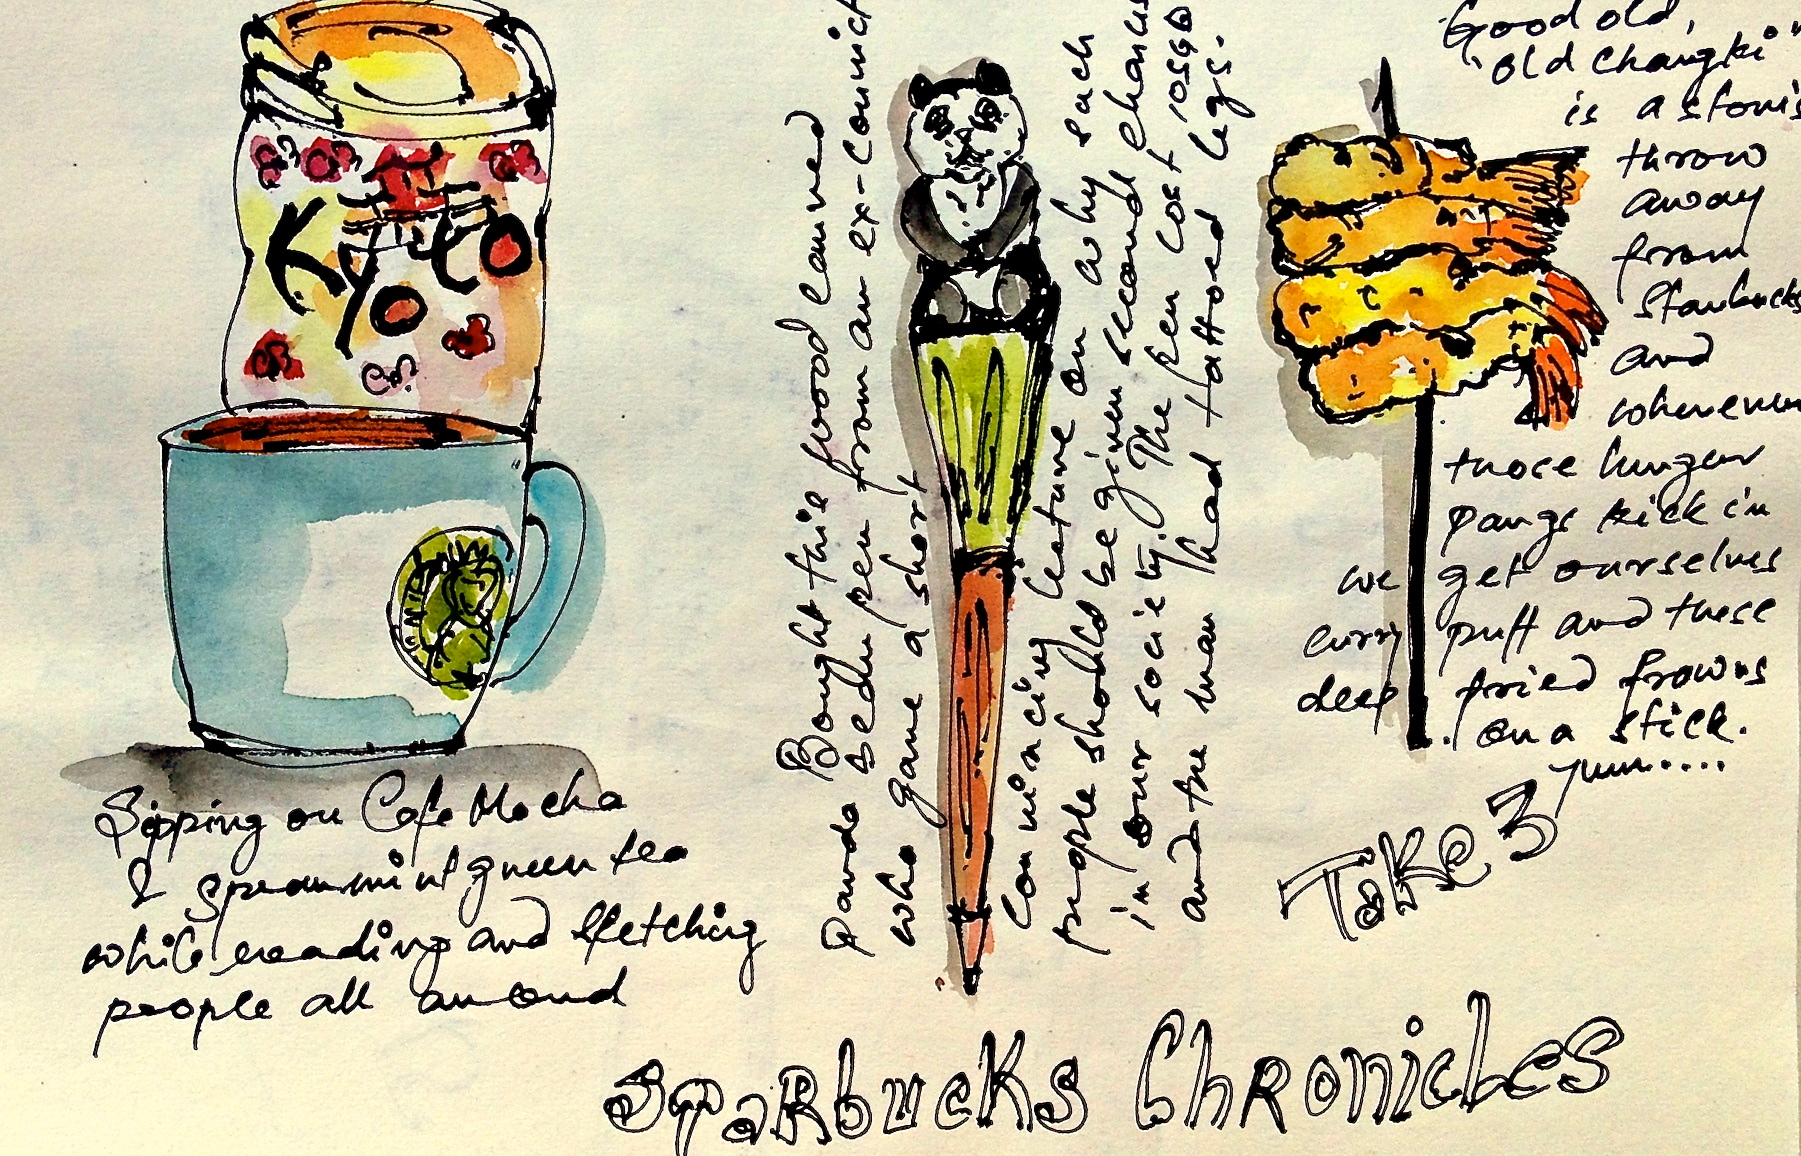 Kyoto
Sipping on Cafe Mocha
& spearmint green tea
while reading and sketching
people all around
Bought this wood carved
Panda pen from an ex-convict
who gave a short
convincing lecture on why such
people should be given second chance
in our society. The pen cost 10SGD
and the man had tattoed legs.
Good old,
"old changki"
is a stone's
throw
away
from
Starbucks
and
whenever
those hunger
pangs kick in
we get ourselves
curry puff and these
deep fried prawns
on a stick.
yum.....
Take 3
Starbucks Chronicles